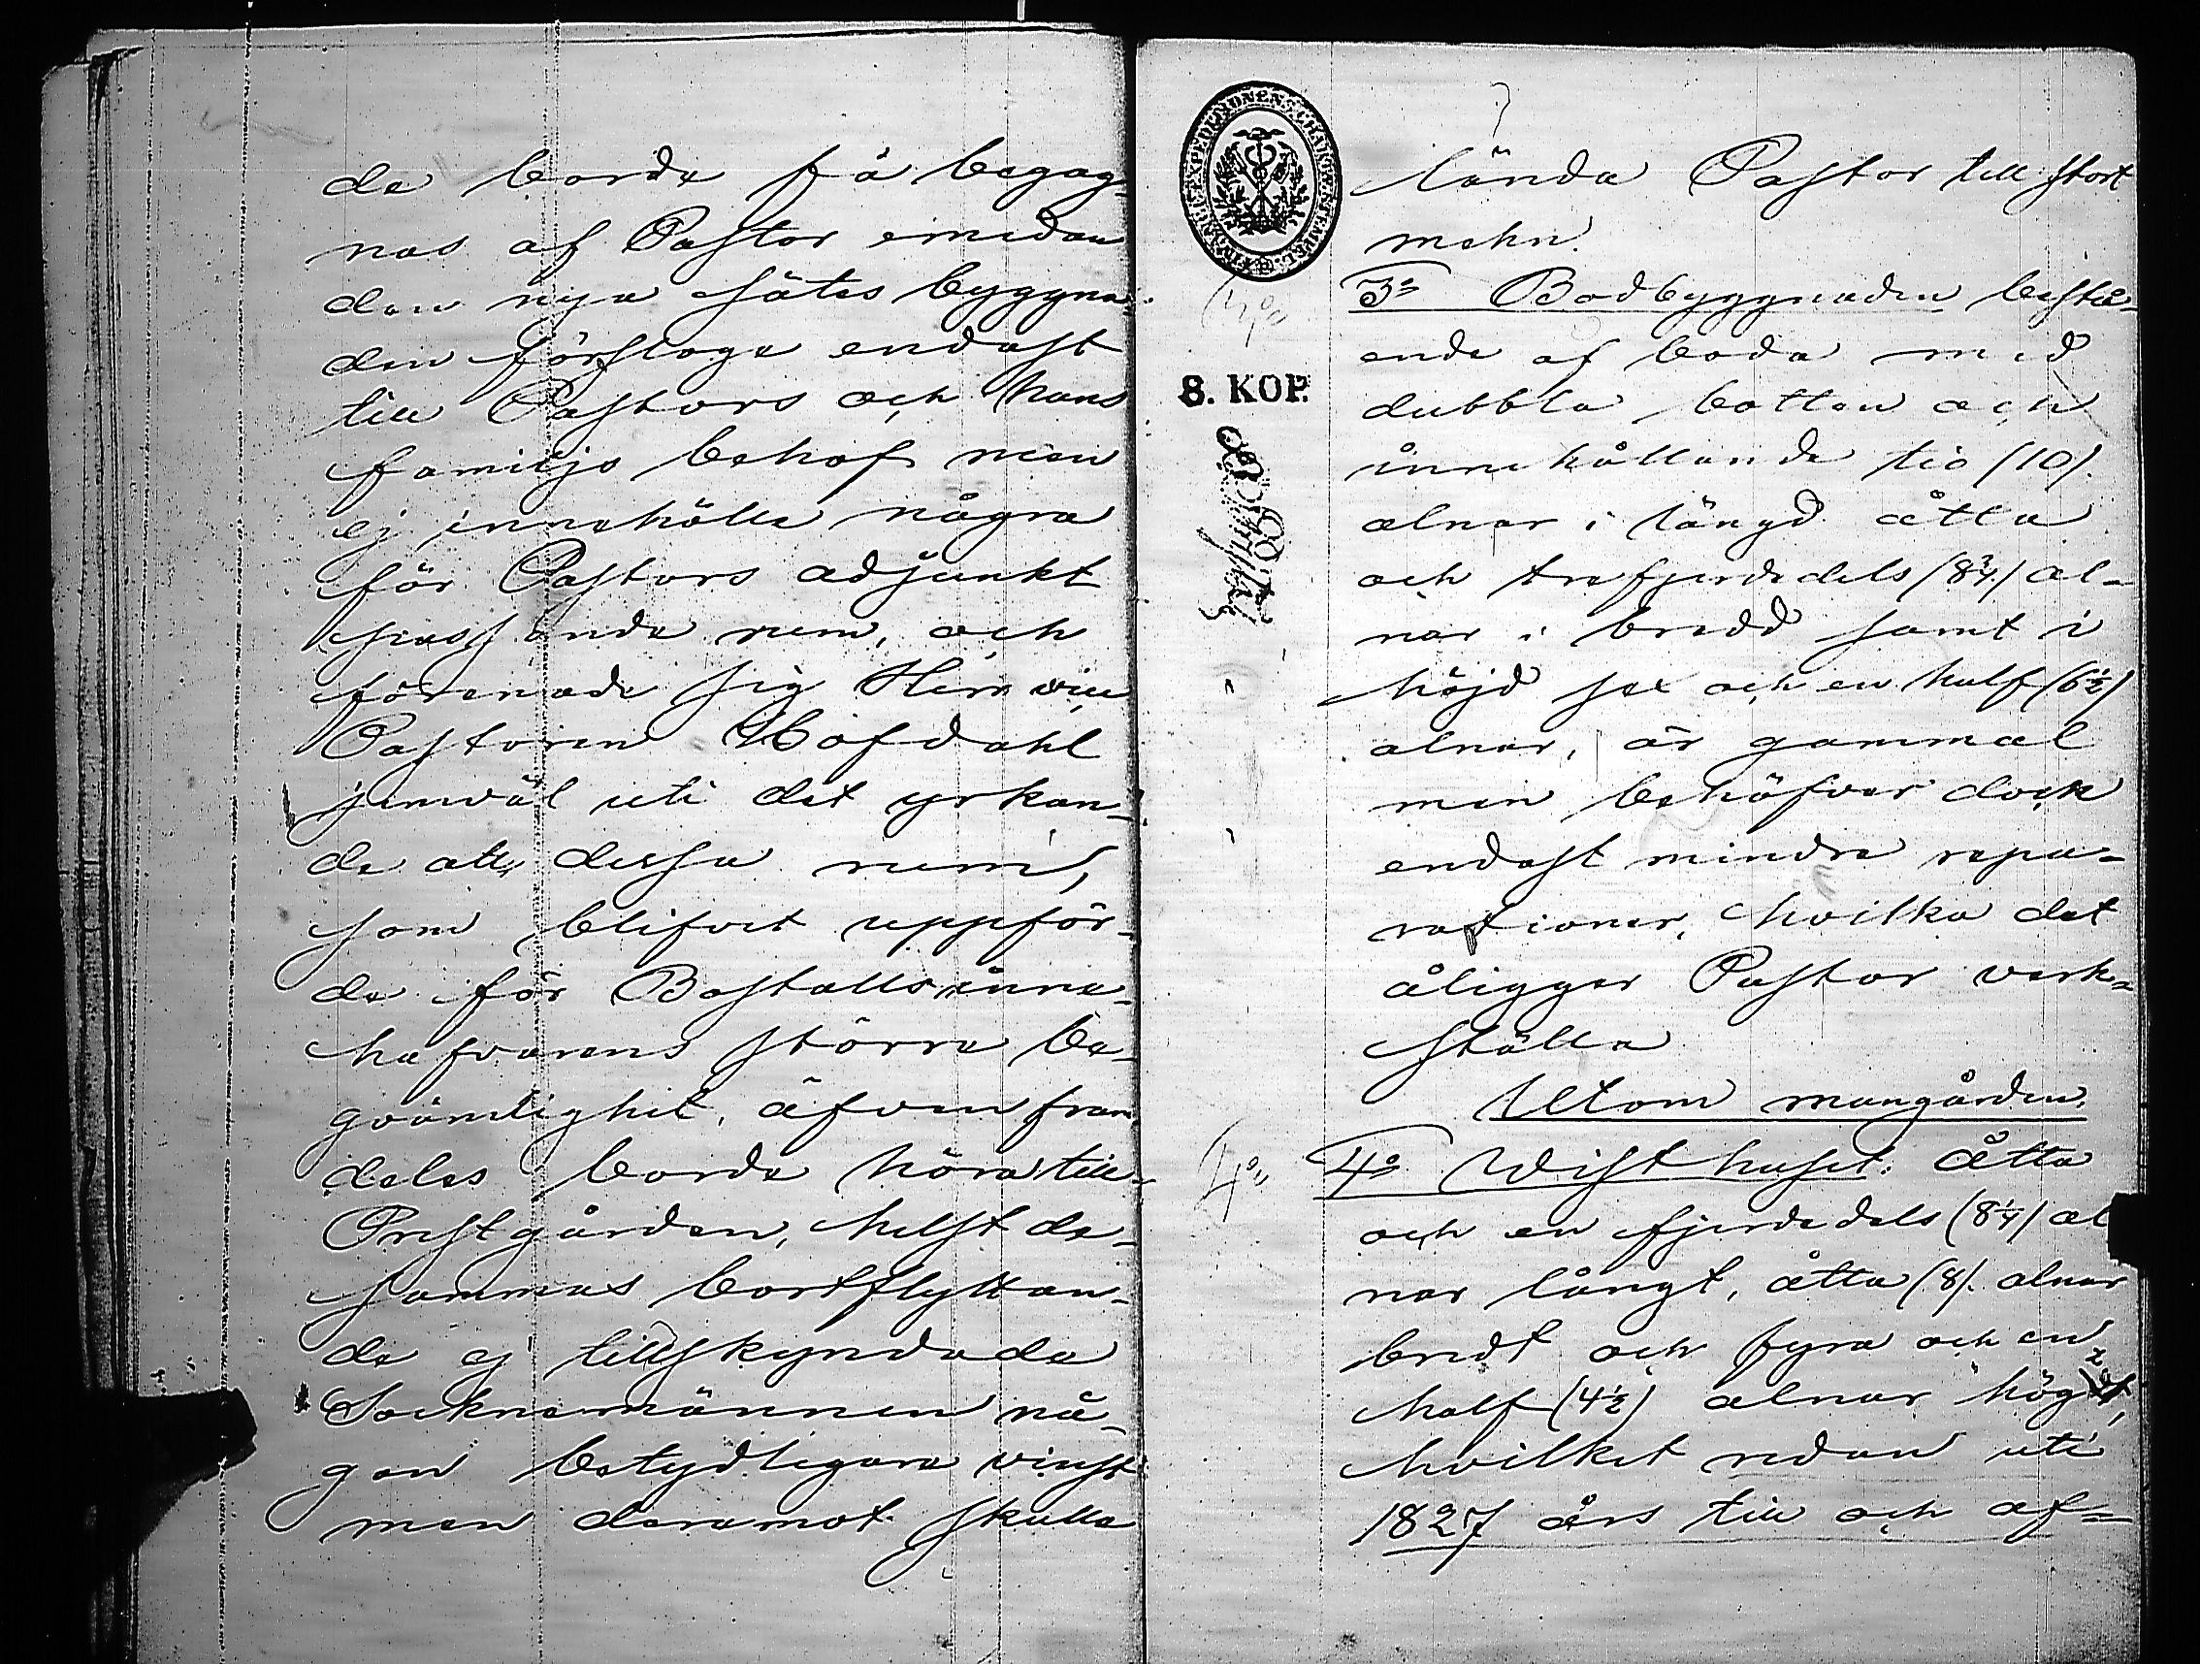 de borde få begag-
nas af Pastor emedan
den nya sätes byggna-
den försloge endast
till Pastors och hans
familjs behof men
ej innehölle några
för Pastors adjunkt
passande rum, och
förenade sig Herr vice
Pastoren Hofdahl
jemväl uti det yrkan-
de att dessa rum,
som blifvit uppför-
da för Boställsinne-
hafvarens större be-
qvämlighet, äfven fram
deles borde höra till
Prestgården, helst de-
sammas bortflyttan-
de ej tillskyndade
Socknemännen nå-
gon betydligare vinst
men deremot skulle
FINANCEEXPEDITIONENS CHARTÆSTEMPEL
lända Pastor till stort
mehn.
3o Bodbyggnaden bestå-
ende af boda med
dubbla botten och
innehållande tio (10).
alnar i längd åtta
och trefjerdedels (8 3/4) al-
nar i bredd samt i
höjd sex och en half (6 1/2)
alnar, är gammal
men behöfver dock
endast mindre repa-
rationer, hvilka det
åligger Pastor verk-
ställa
8. KOP.
Utom mangården.
4o 4o Visthuset: åtta
och en fjerdedels (8 1/4) al
nar långt, åtta (8). alnar
bredt och fyra och en
half (4 1/2) alnar högt,
hvilket redan uti
1827 års till och af-